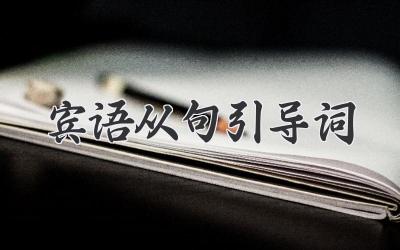 宾语从句引导词